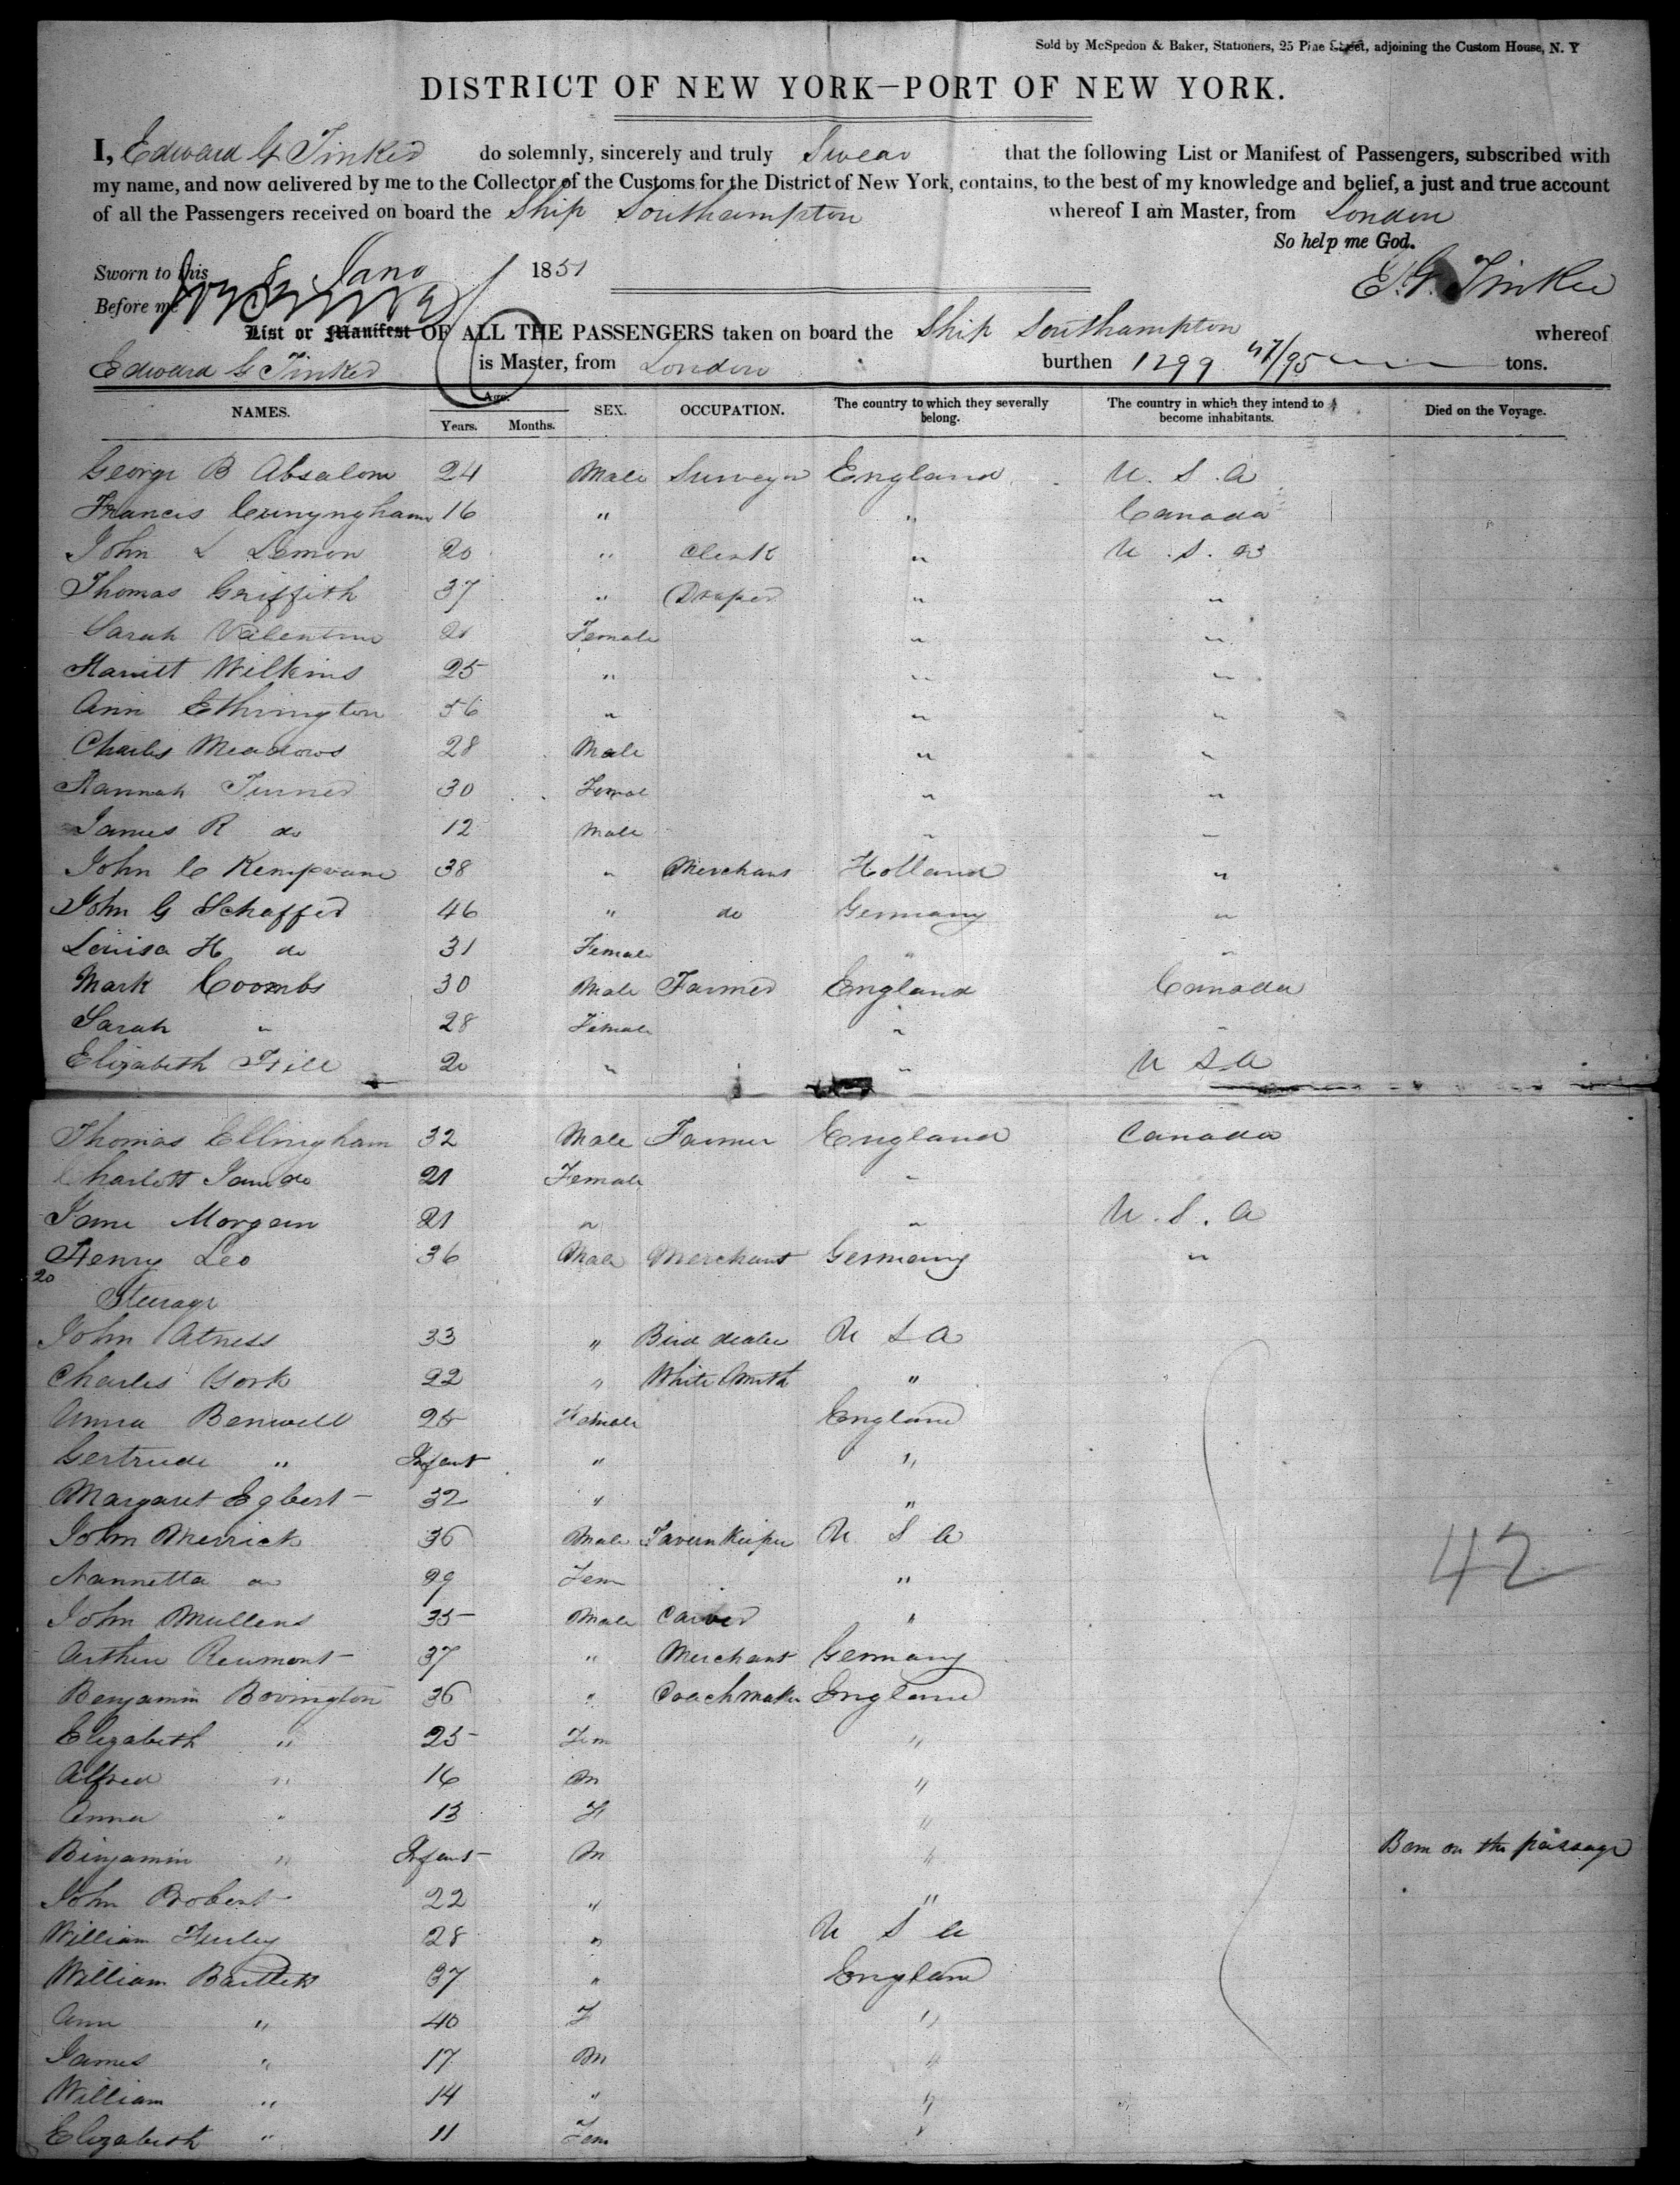 Sold by McSpedon & Baker, Stationers, 25 Pine Street, adjoining the Custom House, N. Y
DISTRICT OF NEW YORK—PORT OF NEW YORK.
I, Edward G Tinker do solemnly, sincerely and truly Swear that the following List or Manifest of Passengers, subscribed with
my name, and now delivered by me to the Collector of the Customs for the District of New York, contains, to the best of my knowledge and belief, a just and true account
of all the Passengers received on board the Ship Southampton whereof I am Master, from London
So help me God.
Sworn to this 8 Jany 1851
E. G. Tinker
Before me
List or Manifest OF ALL THE PASSENGERS taken on board the Ship Southampton whereof
Edward G Tinker is Master, from London burthen 1299 47/95 tons.
NAMES. Age. Years. Months. SEX. OCCUPATION. The country to which they severally belong. The country in which they intend to become inhabitants. Died on the Voyage.
George B Absalom 24 Male Surveyor England U. S. A
Francis Cunyngham 16 " " Canada
John L Lemon 20 " Clerk " U. S. A
Thomas Griffith 37 " Draper " "
Sarah Valentine 21 Female " "
Harriett Wilkins 25 " " "
Ann Ethrington 56 " " "
Charles Meadows 28 Male " "
Hannah Turner 30 Femal " "
James R do 12 Male " "
John C Kempvane 38 " Merchant Holland "
John G Schaffer 46 " do Germany "
Louisa H do 31 Female " "
Mark Coombs 30 Male Farmer England Canada
Sarah " 28 Female " "
Elizabeth Hill 20 " " U S A
Thomas Ellingham 32 Male Farmer England Canada
Charlott Jane do 21 Female "
Jane Morgan 21 " " U. S. A
Henry Leo 36 Male Merchant Germany "
20
Steerage
John Atness 33 " Bird dealer U S A
Charles York 22 " White Smith "
Anna Benwell 25 Female England
Gertrude " Infant " "
Margaret Egbert 32 " "
John Merrick 36 Male Tavern Keeper U S A
Nannetta do 29 Fem "
42
John Mullens 35 Male Carver "
Arthur Reumont 37 " Merchant Germany
Benjamin Bovington 36 " Coachmaker England
Elizabeth " 25 Fem "
Alfred " 16 M "
Anna " 13 F "
Binjamin " Infant M " Born on the passage
John Probert 22 " "
William Furley 28 " U S A
William Bartlett 37 " England
Ann " 40 F "
James " 17 M "
William " 14 " "
Elizabeth " 11 Fem "